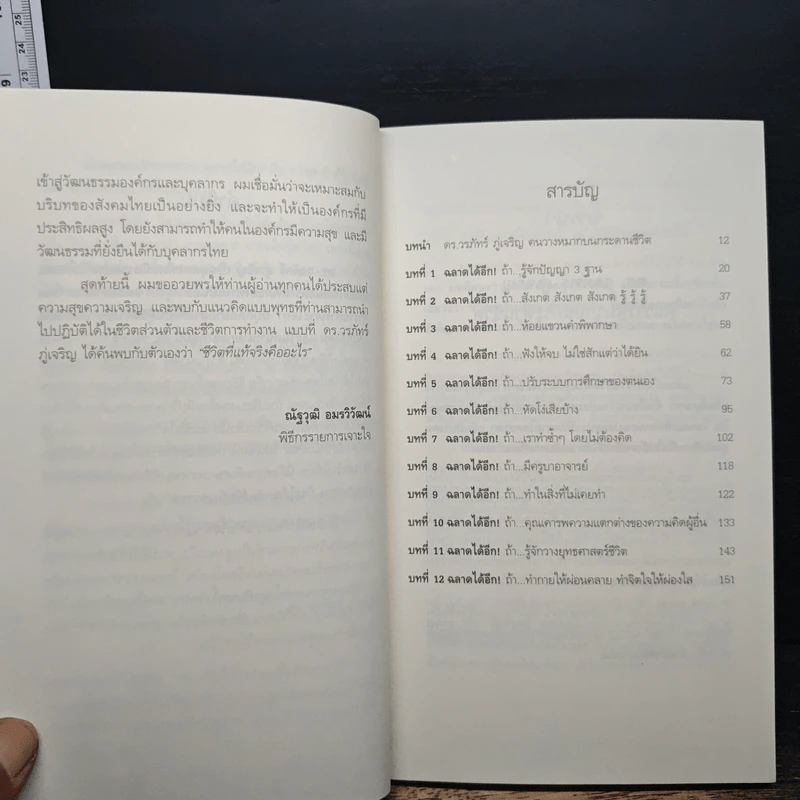 25
24
23
9
เข้าสู่วัฒนธรรมองค์กรและบุคลากร ผมเชื่อมั่นว่าจะเหมาะสมกับ
บริบทของสังคมไทยเป็นอย่างยิ่ง และจะทำให้เป็นองค์กรที่มี
ประสิทธิผลสูง โดยยังสามารถทำให้คนในองค์กรมีความสุข และมี
วัฒนธรรมที่ยั่งยืนได้กับบุคลากรไทย
สุดท้ายนี้ ผมขออวยพรให้ท่านผู้อ่านทุกคนได้ประสบแต่
ความสุขความเจริญ และพบกับแนวคิดแบบพุทธที่ท่านสามารถนำ
ไปปฏิบัติได้ในชีวิตส่วนตัวและชีวิตการทำงาน แบบที่ ดร.วรภัทร์
ภู่เจริญ ได้ค้นพบกับตัวเองว่า "ชีวิตที่แท้จริงคืออะไร"
ณัฐวุฒิ อมรวิวัฒน์
พิธีกรรายการเจาะใจ
สารบัญ
บทนำ ดร.วรภัทร์ ภู่เจริญ คนวางหมากบนกระดานชีวิต 12
บทที่ 1 ฉลาดได้อีก! ถ้า...รู้จักปัญญา 3 ฐาน 20
บทที่ 2 ฉลาดได้อีก! ถ้า...สังเกต สังเกต สังเกต รู้ รู้ รู้ 37
บทที่ 3 ฉลาดได้อีก! ถ้า...ห้อยแขวนคำพิพากษา 58
บทที่ 4 ฉลาดได้อีก! ถ้า...ฟังให้จบ ไม่ใช่สักแต่ว่าได้ยิน 62
บทที่ 5 ฉลาดได้อีก! ถ้า...ปรับระบบการศึกษาของตนเอง 73
บทที่ 6 ฉลาดได้อีก! ถ้า...หัดโง่เสียบ้าง 95
บทที่ 7 ฉลาดได้อีก! ถ้า...เราทำซ้ำๆ โดยไม่ต้องคิด 102
บทที่ 8 ฉลาดได้อีก! ถ้า...มีครูบาอาจารย์ 118
บทที่ 9 ฉลาดได้อีก! ถ้า...ทำในสิ่งที่ไม่เคยทำ 122
บทที่ 10 ฉลาดได้อีก! ถ้า...คุณเคารพความแตกต่างของความคิดผู้อื่น 133
บทที่ 11 ฉลาดได้อีก! ถ้า...รู้จักวางยุทธศาสตร์ชีวิต 143
บทที่ 12 ฉลาดได้อีก! ถ้า...ทำกายให้ผ่อนคลาย ทำจิตใจให้ผ่องใส 151